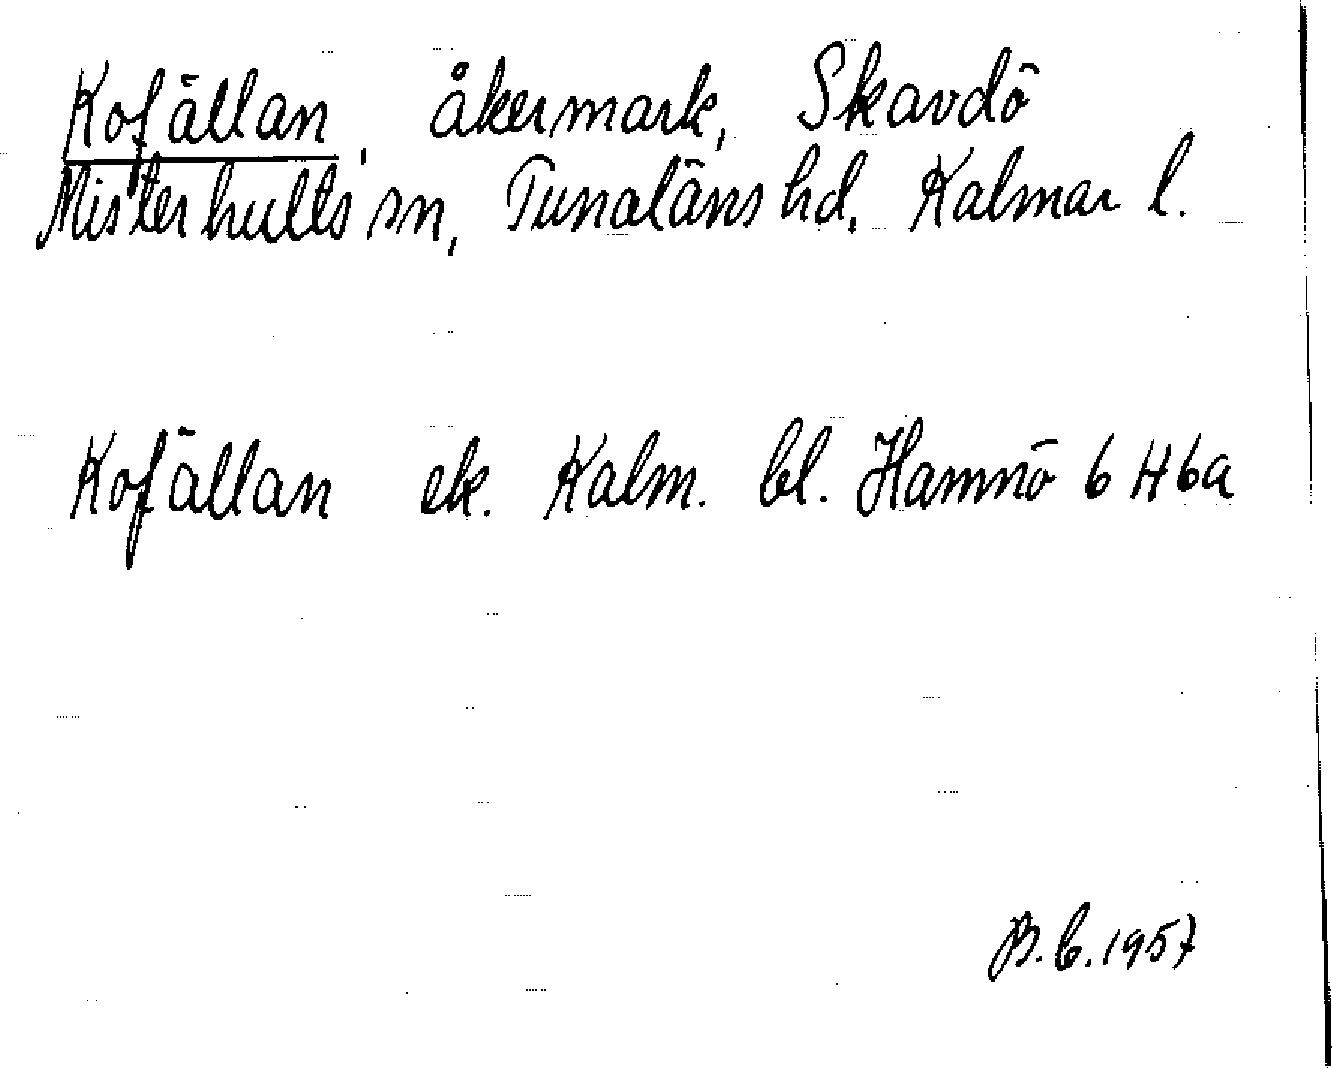 Kofällan, åkermark, Skavdö
Misterhults sn, Tunaläns hd, Kalmar l.
Kofällan ek. Kalm. bl. Hamnö 6 H 6a
B.C. 1957